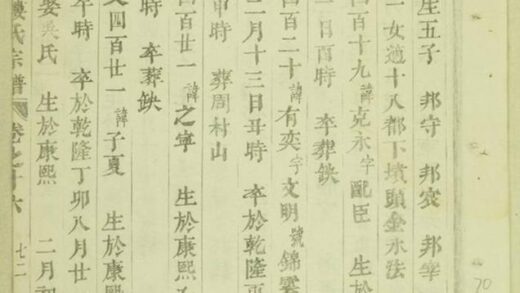 生五子 邦守 邦寀 邦宰
一女適十八都下墳頭金永法
四百十九諱克永字配臣 生於
二日酉時 卒葬缺
四百二十諱有奕字文明號錦雲
二月十三日丑時 卒於乾隆
申時 葬周村山
四百廿一諱之寧 生於康熙
時 卒葬缺
又四百廿一諱子夏 生於康熙
年時 卒於乾隆丁卯八月廿
娶吳氏 生於康熙 二月初
婁氏宗譜 卷之十六 七二
70